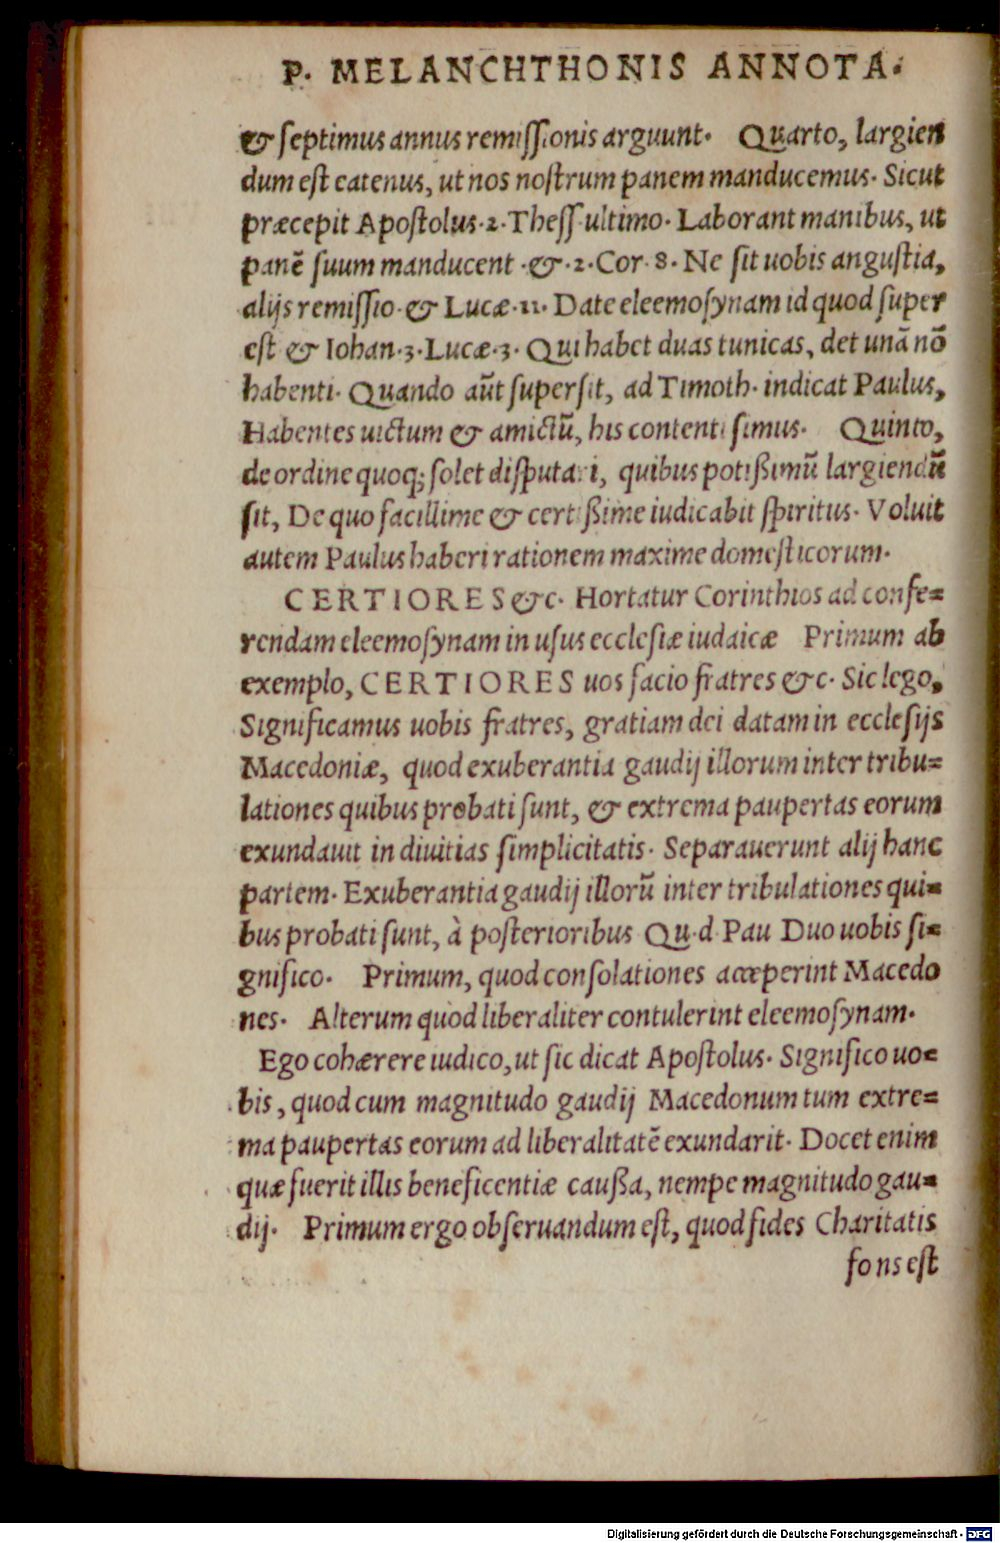 P. MELANCHTHONIS ANNOTA.
& septimus annus remissionis arguunt. Quarto, largien
dum est catenus, ut nos nostrum panem manducemus. Sicut
præcepit Apostolus.2.Thess.ultimo. Laborant manibus, ut
panē suum manducent.&.2.Cor.8. Ne sit uobis angustia,
alijs remissio.& Lucæ.11. Date eleemosynam id quod super
est & Iohan.3.Lucæ.3. Qui habet duas tunicas, det unā nō
habenti. Quando aūt supersit, ad Timoth. indicat Paulus,
Habentes uictum & amictū, his contenti simus. Quinto,
de ordine quoq; solet disputari, quibus potißimū largiendū
sit, De quo facillime & certißime iudicabit spiritus. Voluit
autem Paulus haberi rationem maxime domesticorum.
CERTIORES &c. Hortatur Corinthios ad confe=
rendam eleemosynam in usus ecclesiæ iudaicæ Primum ab
exemplo, CERTIORES uos facio fratres &c. Sic lego,
Significamus uobis fratres, gratiam dei datam in ecclesijs
Macedoniæ, quod exuberantia gaudij illorum inter tribu=
lationes quibus probati sunt, & extrema paupertas eorum
exundauit in diuitias simplicitatis. Separauerunt alij hanc
partem. Exuberantia gaudij illorū inter tribulationes qui=
bus probati sunt, à posterioribus Qu.d Pau Duo uobis si=
gnifico. Primum, quod consolationes acceperint Macedo
nes. Alterum quod liberaliter contulerint eleemosynam.
Ego cohærere iudico, ut sic dicat Apostolus. Significo uo=
bis, quod cum magnitudo gaudij Macedonum tum extre=
ma paupertas eorum ad liberalitatē exundarit. Docet enim
quæ fuerit illis beneficentiæ caußa, nempe magnitudo gau=
dij. Primum ergo obseruandum est, quod fides Charitatis
fons est
Digitalisierung gefördert durch die Deutsche Forschungsgemeinschaft - DFG